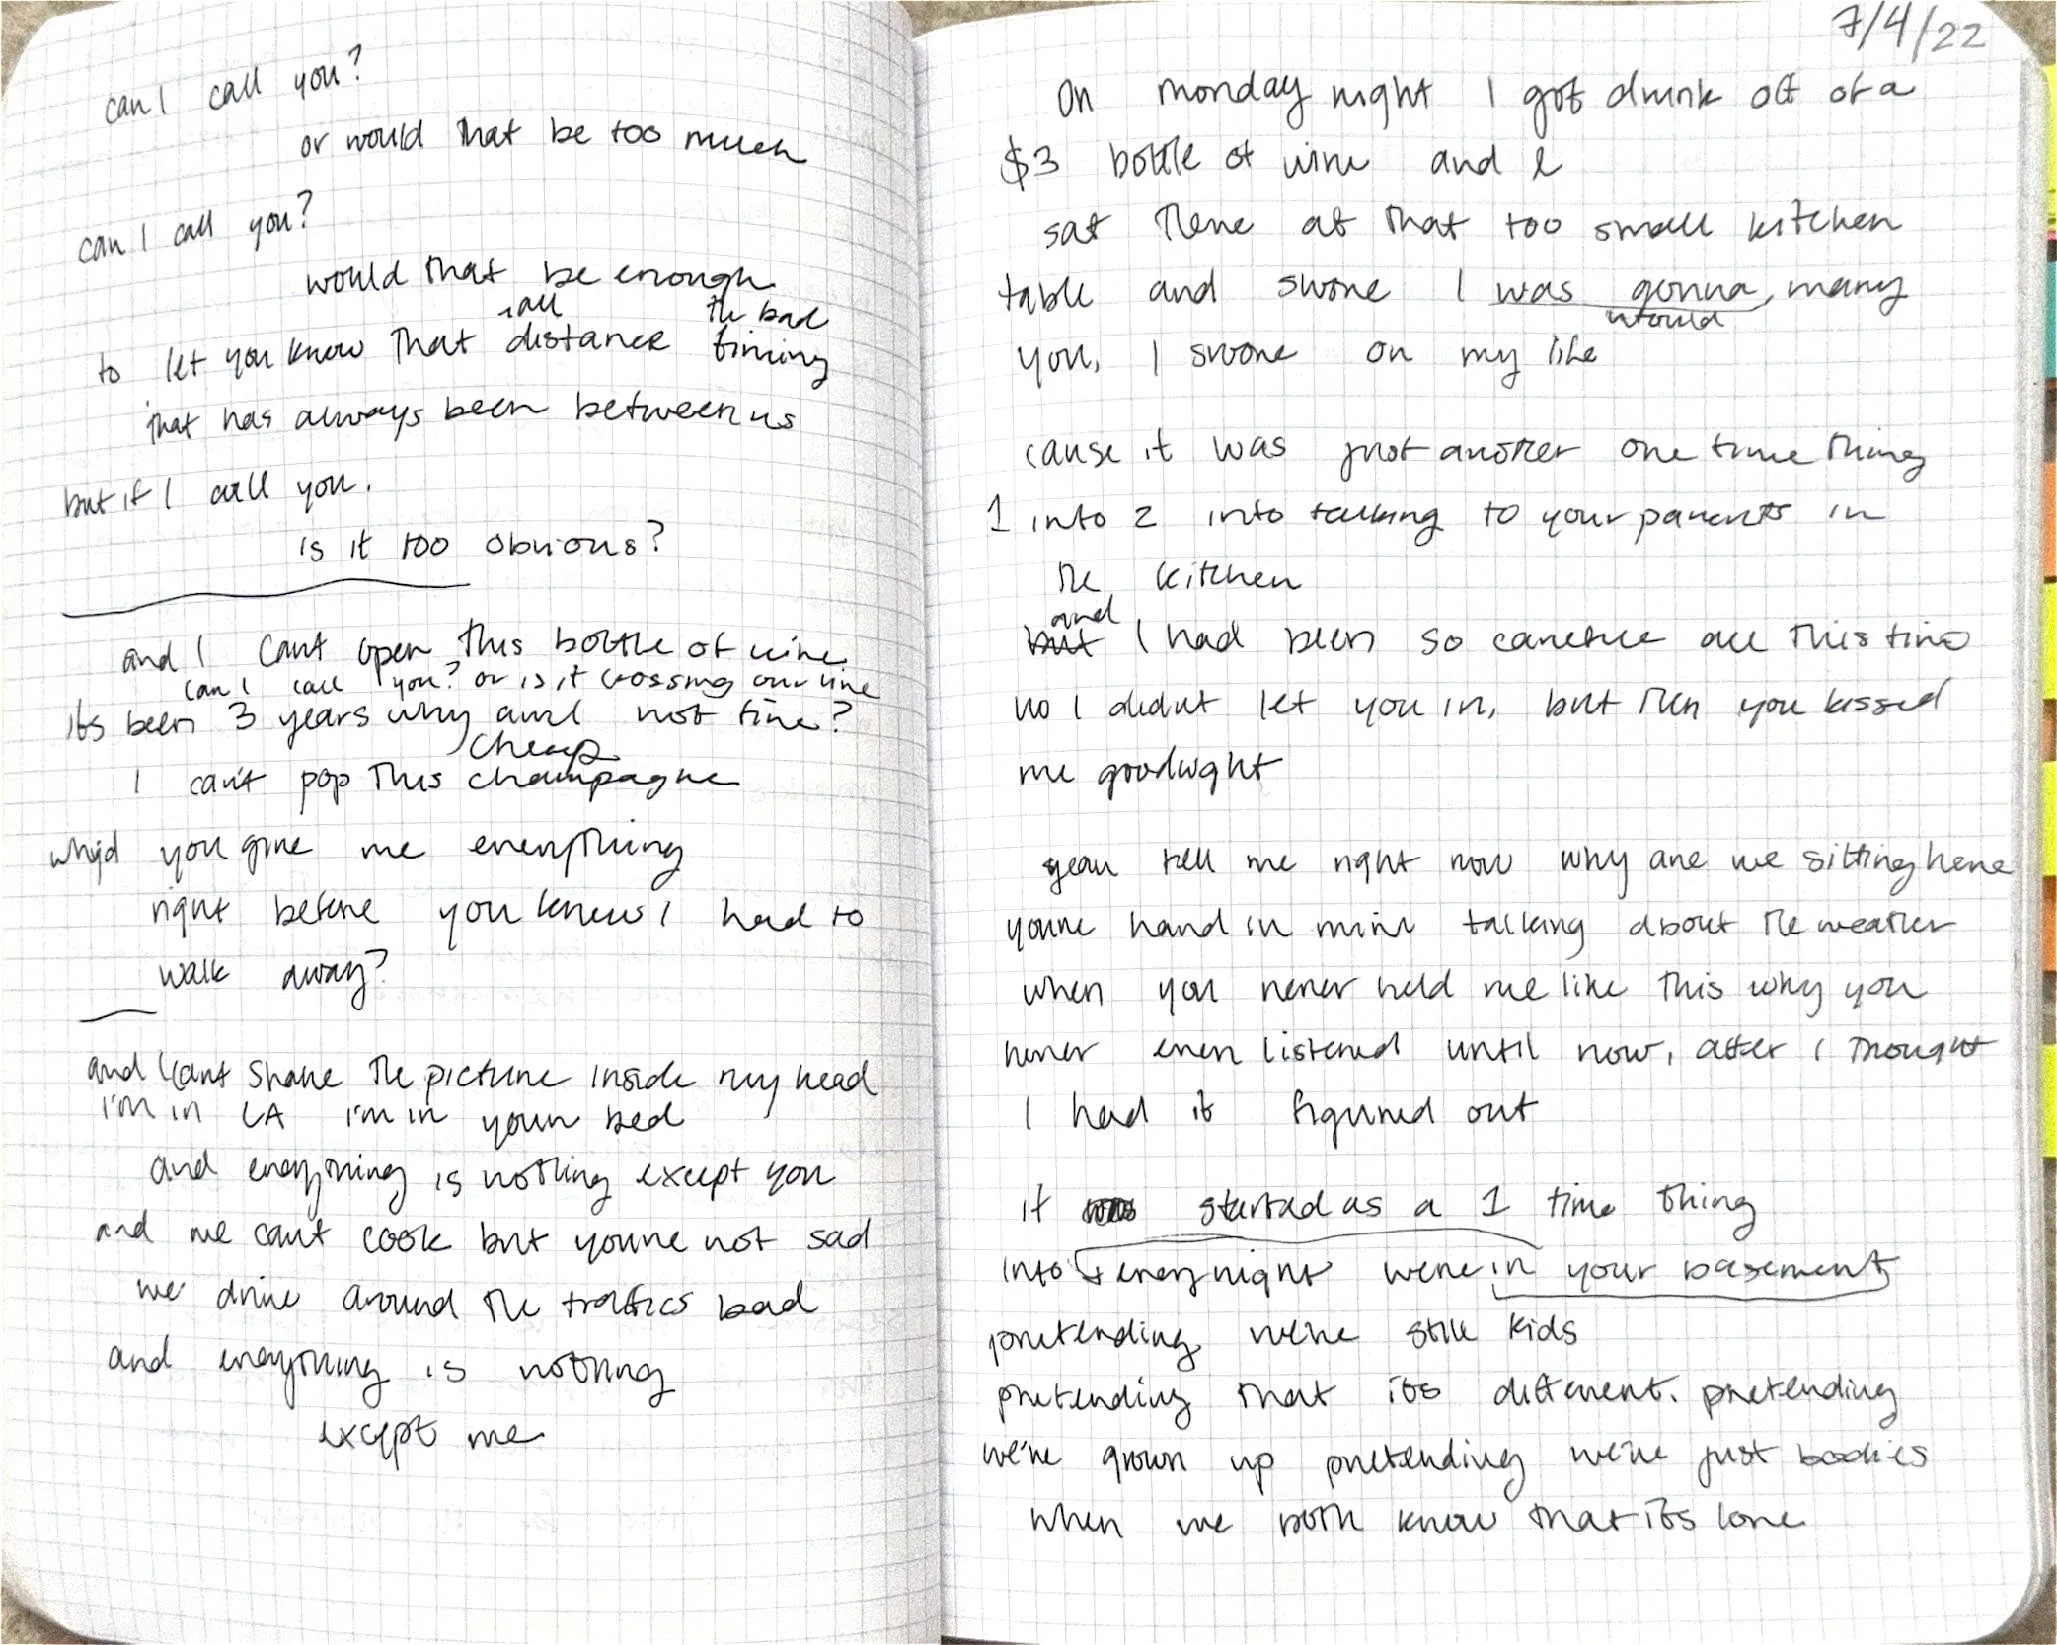 can I call you?
or would that be too much
can I call you?
would that be enough
all the bad
to let you know that distance timing
that has always been between us
but if I call you.
is it too obvious?
and I cant open this bottle of wine
can I call you? or is it crossing our line
its been 3 years why am I not fine?
cheap
I can't pop this champagne
why'd you give me everything
right before you knew I had to
walk away?
and I cant shake the picture inside my head
I'm in LA I'm in your bed
and everything is nothing except you
and we cant cook but you're not sad
we drive around the traffics bad
and everything is nothing
except me
7/4/22
On monday night I got drunk off of a
$3 bottle of wine and I
sat there at that too small kitchen
table and swore I was gonna marry
would
you, I swore on my life
cause it was just another one time thing
1 into 2 into talking to your parents in
the kitchen
and
but I had been so careful all this time
no I didnt let you in, but then you kissed
me goodnight
yeah tell me right now why are we sitting here
youre hand in mine talking about the weather
when you never held me like this why you
never even listened until now, after I thought
I had it figured out
it was started as a 1 time thing
into every night were in your basement
pretending we're still kids
pretending that its different. pretending
we're grown up pretending we're just bodies
when we both know that its love